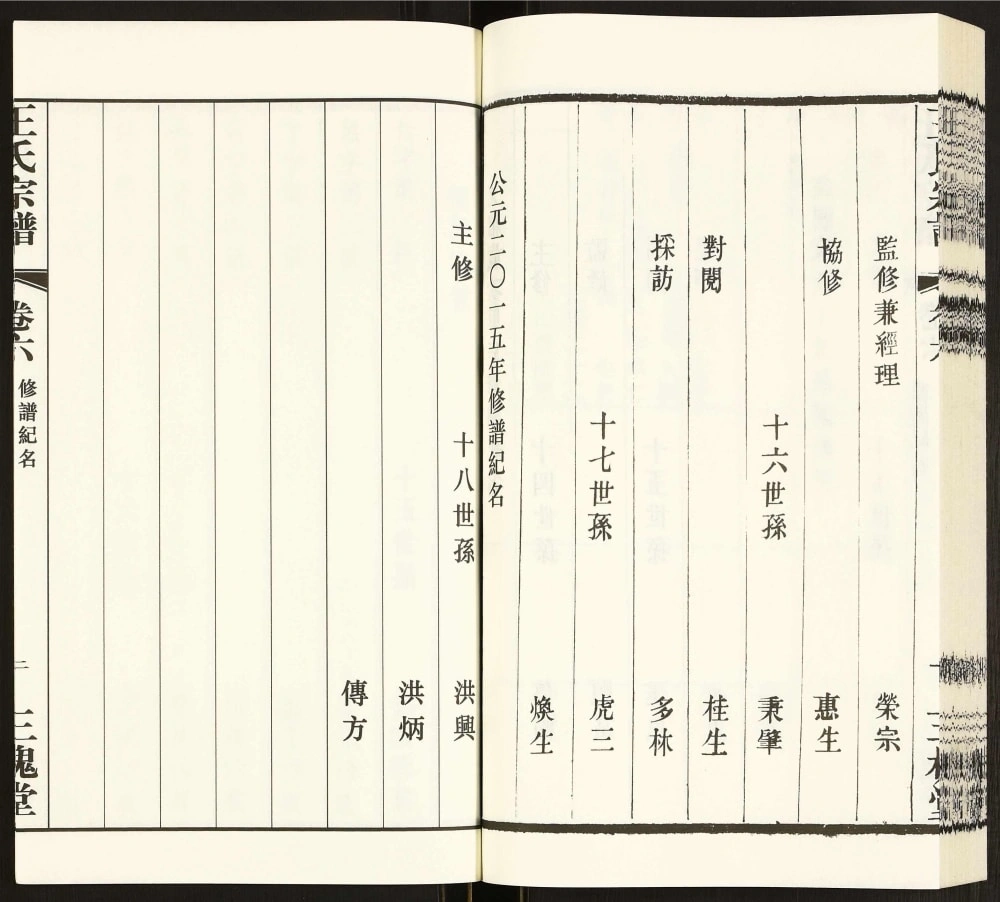 監修兼經理 榮宗
協修 惠生
十六世孫 秉肇
對閱 桂生
採訪 多林
十七世孫 虎三
煥生
公元二〇一五年修譜紀名
主修 十八世孫 洪興
洪炳
傳方
王氏宗譜 卷六 修譜紀名 二 三槐堂